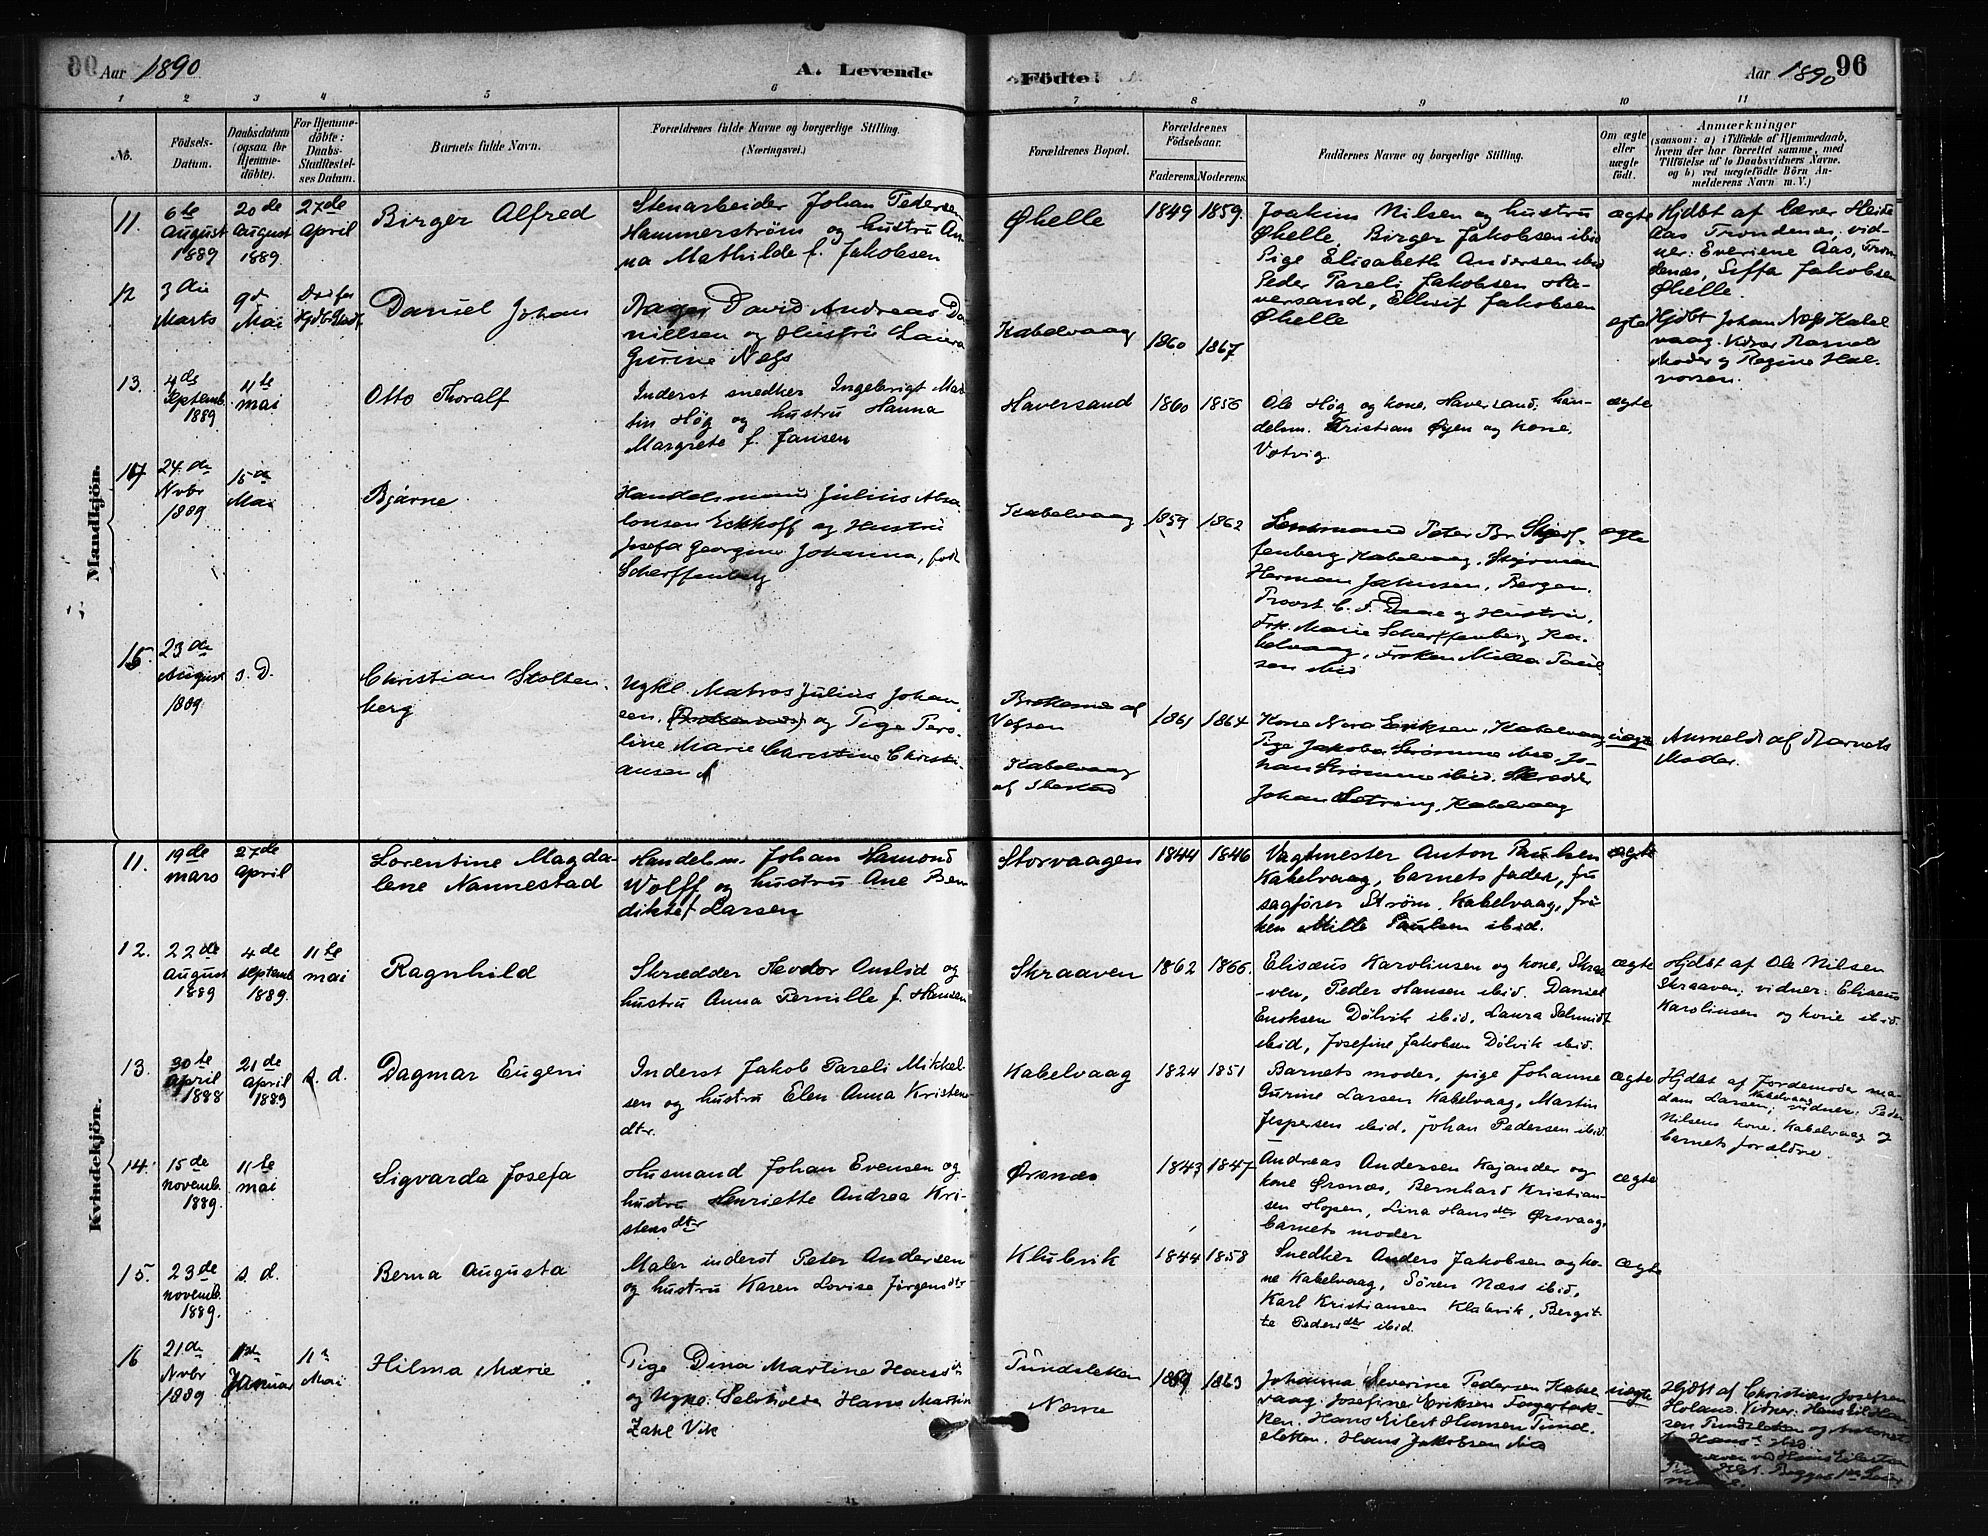 Aar 1890
A. Levende
Födte.
Aar 1890
96
1 2 3 4 5 6 7 8 9 10 11
No.
Födsels-Datum.
Daabsdatum (ogsaa for Hjemme-döbte).
For Hjemme-döbte: Daabs-Stadfæstel-ses Datum.
Barnets fulde Navn.
Forældrenes fulde Navne og borgerlige Stilling. (Næringsvei.)
Forældrenes Bopæl.
Forældrenes Födselsaar.
Faderens. Moderens.
Faddernes Navne og borgerlige Stilling.
Om ægte eller uægte født.
Anmærkninger
(saasom: a) i Tilfælde af Hjemmedaab, hvem der har forrettet samme, med Tilföielse af to Daabsvidners Navne. og b) ved uægtefödte Börn Anmelderens Navn m. V.)
Mandkjön.
11. 6te August 1889
20de August 1889.
27de April
Birger Alfred
Stenarbeider Johan Pedersen
Hammerström og hustru An-
na Mathilde f. Jakobsen
Øhelle
1849 1859.
Joakim Nilsen og hustru
Øhelle, Birger Jakobsen ibid
Pige Elisabeth Andersen ibid
Peder Pareli Jakobsen Ha-
versand, Ellvif Jakobsen
Øhelle
ægte
Hjdbt af Lærer Heide
Aas Trondenes, vid-
ner: Everiene Aas, Tron-
denæs, Siffa Jakobsen
Øhelle.
12 3die Marts
9de Mai
Daniel Johan
David Andreas Da-
nielsen og Hustru Laura
Gurine Næss
Kabelvaag
1860 1867
ægte
Hjdbt Johan Næss Kabel
vaag. Vidner Barnets
Moder og Regine Hal-
vorsen.
13. 4de Septemb. 1889
11te mai
Otto Thoralf
Inderst snedker Ingebrigt Mar-
tin Høg og hustru Hanna
Margrete f. Jansen
Haversand
1860 1856
Ole Høg og kone, Haversand, han-
delsm. Kristian Øyen og kone,
Votvig.
ægte
24de Nvbr 1889
15de Mai
Bjarne
Handelsmand Julius Absa-
lonsen Eckhoff og Hustru
Josefa Georgine Johanna, født
Scherffenberg
Kabelvaag
1859 1862
Lensmand Peter Br. Scherf-
fenberg Kabelvaag, Styrman
Herman Jakobsen, Bergen,
Provst C. F. Daae og Hustru,
Frk. Marie Scherffenberg Ka-
belvaag, Frøken Milla Paul-
sen ibid
ægte
15. 23de August 1889
s. D.
Christian Stolten-
berg
Ugkl. Matros Julius Johan-
sen, og Pige Pero-
line Marie Christine Christi-
ansen
Vefsen
Kabelvaag
af Ibestad
1861 1864
Kone Nora Eriksen, Kabelvaag
Pige Jakoba Strømme ibid, Jo-
han Strømme ibid. Skrædder
Johan Sætring, Kabelvaag
uægte
Anmeldt af Barnets
Moder.
Kvindekjön.
11. 19de mars
27de april
Lorentine Magda-
lene Nannestad
Handelsm. Johan Hamond
Wolff og hustru Ane Ben-
dikte f. Larsen
Storvaagen
1844 1846
Vagtmester Anton Paulsen
Kabelvaag, barnets fader, fru
sagfører Strøm, Kabelvaag, frø-
ken Mille Paulsen ibid.
ægte
12. 22de August 1889
4de septemb. 1889.
11te mai
Ragnhild
Skrædder Teodor Amlid og
hustru Anna Pernille f. Hansen
Skraaven
1862 1866.
Elisæus Karolinsen og kone, Skraa-
ven, Peder Hansen ibid. Daniel
Enoksen Dølvik ibid, Laura Schmidt
ibid, Josefine Jakobsen Dølvik ibid.
ægte
Hjdbt af Ole Nilsen
Skraaven; vidner: Elisæus
Karolinsen og kone ibid.
13. 30te April 1888
21de april 1889
s. d.
Dagmar Eugeni
Inderst Jakob Pareli Mikkel-
sen og hustru Elen Anna Kristens-
dtr.
Kabelvaag
1824 1851
Barnets moder, pige Johanne
Gurine Larsen Kabelvaag, Martin
Jespersen ibid, Johan Pedersen ibid.
ægte
Hjdbt af Jordemoder ma-
dam Larsen, Kabelvaag; vidner: Peder
Nilsens kone, Kabelvaag og
barnets forældre.
14. 15de novemb. 1889.
11te mai
Sigvarda Josefa
Husmand Johan Evensen og
hustru Henriette Andrea Kri-
stensdtr
Ørsnæs
1843 1847
Andreas Andersen Kajander og
kone Ørsnæs, Bernhard Kristian-
sen Hopen, Lina Hansdtr Ørsvaag,
barnets moder
ægte
15. 23de novemb. 1889.
s. d.
Berna Augusta
Maler inderst Peter Andersen
og hustru Karen Lovise Jørgensdtr
Klubvik
1844 1858
Snedker Anders Jakobsen og ko-
ne Kabelvaag, Søren Næss ibid,
Karl Kristiansen Klubvik, Bergit-
te Pedersdtr ibid.
ægte
16 21de Nvbr 1889
Januar
11te Mai
Hilma Marie
Pige Dina Martine Hansd.
og Ugkl. Hans Martin
Zahl Vik
Tundsletten
1869 1863
Johanna Severine Pedersen Kabel-
vaag. Josefine Eriksen
Hans Eilert Hansen Tund-
sletten. Hans Jakobsen ibid
uægte
Hjdbt af Christian Josefsen
Holand. Vidner: Hans Eil. Han-
sen Tundsletten og